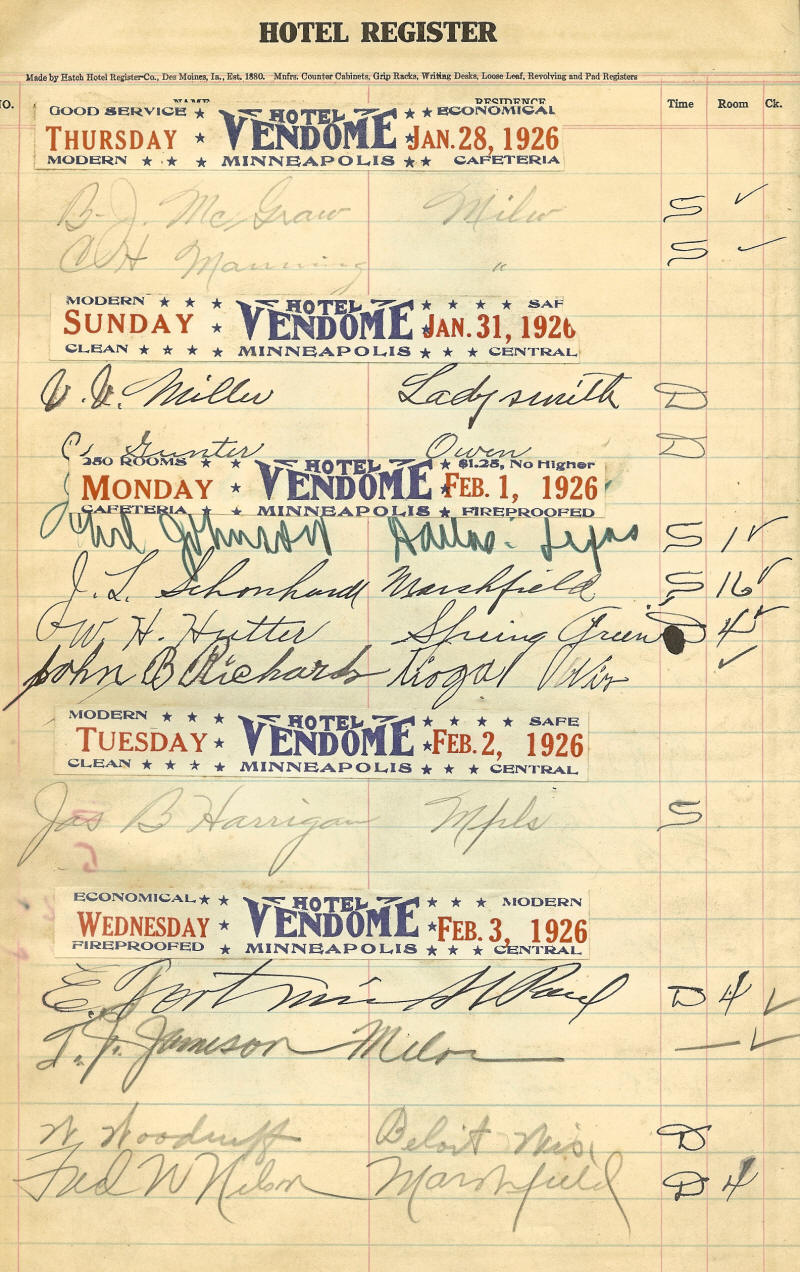 HOTEL REGISTER
Made by Hatch Hotel Register Co., Des Moines, Ia., Est. 1880. Mnfrs. Counter Cabinets, Grip Racks, Writing Desks, Loose Leaf, Revolving and Pad Registers
NO. NAME RESIDENCE Time Room Ck.
GOOD SERVICE ★ HOTEL ★ ★ ECONOMICAL
THURSDAY ★ VENDOME ★ JAN. 28, 1926
MODERN ★ ★ ★ MINNEAPOLIS ★ ★ CAFETERIA
B. J. McGraw Milw S ✓
C H Manning " S ✓
MODERN ★ ★ ★ HOTEL ★ ★ ★ ★ SAF
SUNDAY ★ VENDOME ★ JAN. 31, 1926
CLEAN ★ ★ ★ ★ MINNEAPOLIS ★ ★ ★ CENTRAL
V. V. Miller Ladysmith D
Gunter Owen D
250 ROOMS ★ ★ HOTEL ★ $1.25, No Higher
MONDAY ★ VENDOME ★ FEB. 1, 1926
CAFETERIA ★ ★ MINNEAPOLIS ★ FIREPROOFED
Johnson Dallas. Texas S 1 ✓
J. L. Schonhardt Marshfield S 16 ✓
W. H. Hutter Spring Green D 4 ✓
John B Richards Wis ✓
MODERN ★ ★ ★ HOTEL ★ ★ ★ ★ SAFE
TUESDAY ★ VENDOME ★ FEB. 2, 1926
CLEAN ★ ★ ★ ★ MINNEAPOLIS ★ ★ ★ CENTRAL
Jas B Harrigan Mpls S
ECONOMICAL ★ ★ HOTEL ★ ★ ★ MODERN
WEDNESDAY ★ VENDOME ★ FEB. 3, 1926
FIREPROOFED ★ MINNEAPOLIS ★ ★ ★ CENTRAL
E. St Paul D 4 ✓
T. J. Jameson Milw — ✓
W Woodruff Beloit Wis. D
Fred W Nelson Marshfield D 4